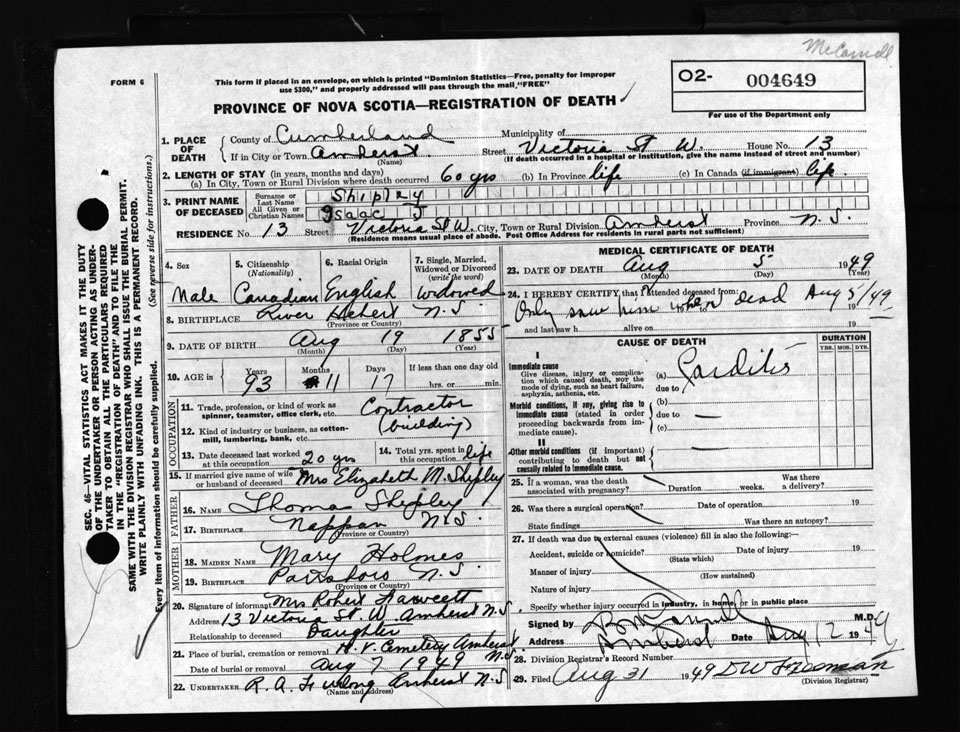 McCarroll
FORM 6
This form if placed in an envelope, on which is printed "Dominion Statistics—Free, penalty for improper
use $300," and properly addressed will pass through the mail "FREE"
O2- 004649
For use of the Department only
PROVINCE OF NOVA SCOTIA—REGISTRATION OF DEATH
1. PLACE OF DEATH
County of Cumberland Municipality of
If in City or Town Amherst. (Name) Street Victoria St W. House No. 13
(If death occurred in a hospital or institution, give the name instead of street and number)
2. LENGTH OF STAY (in years, months and days)
(a) In City, Town or Rural Division where death occurred 60 yrs (b) In Province life (c) In Canada (if immigrant) life.
3. PRINT NAME OF DECEASED
Surname or Last Name Shipley
All Given or Christian Names Isaac J
RESIDENCE No. 13 Street Victoria St W. City, Town or Rural Division Amherst Province N. S.
(Residence means usual place of abode. Post Office Address for residents in rural parts not sufficient)
4. Sex 5. Citizenship (Nationality) 6. Racial Origin 7. Single, Married, Widowed or Divorced (write the word)
Male Canadian English widowed
8. BIRTHPLACE River Hebert N. S
(Province or Country)
9. DATE OF BIRTH Aug 19 1855
(Month) (Day) (Year)
10. AGE in Years Months Days If less than one day old
93 11 17 hrs. or min.
OCCUPATION
11. Trade, profession, or kind of work as spinner, teamster, office clerk, etc. Contractor
12. Kind of industry or business, as cotton-mill, lumbering, bank, etc. (building)
13. Date deceased last worked at this occupation 20 yrs 14. Total yrs. spent in this occupation life
15. If married give name of wife or husband of deceased Mrs Elizabeth M. Shipley
FATHER
16. NAME Thomas Shipley
17. BIRTHPLACE Nappan N. S.
(Province or Country)
MOTHER
18. MAIDEN NAME Mary Holmes
19. BIRTHPLACE Parrsboro N. S.
(Province or Country)
20. Signature of informant Mrs Robert Fawcett
Address 13 Victoria St. W. Amherst N.S.
Relationship to deceased Daughter
21. Place of burial, cremation or removal H. V. Cemetery Amherst N.S.
Date of burial or removal Aug 7 1949
22. UNDERTAKER R. A. Furlong Amherst N.S
(Name and address)
MEDICAL CERTIFICATE OF DEATH
23. DATE OF DEATH Aug 5 1949
(Month) (Day) (Year)
24. I HEREBY CERTIFY that I attended deceased from:
Only saw him when dead Aug 5/49
19 to 19
and last saw h alive on 19
CAUSE OF DEATH
DURATION
YRS. MOS. DYS.
I
Immediate cause
Give disease, injury or complication which caused death, NOT the mode of dying, such as heart failure, asphyxia, asthenia, etc.
(a) Carditis
due to
Morbid conditions, if any, giving rise to immediate cause (stated in order proceeding backwards from immediate cause).
(b)
due to
(c)
II
Other morbid conditions (if important) contributing to death but not causally related to immediate cause.
25. If a woman, was the death associated with pregnancy? Duration weeks. Was there a delivery?
26. Was there a surgical operation? Date of operation 19
State findings Was there an autopsy?
27. If death was due to external causes (violence) fill in also the following:
Accident, suicide or homicide? Date of injury 19
(State which)
Manner of injury (How sustained)
Nature of injury
Specify whether injury occurred in industry, in home, or in public place
Signed by M.D.
Address Amherst Date Aug 12 1949
28. Division Registrar's Record Number
29. Filed Aug 31 1949 D W Freeman
(Division Registrar)
SEC. 46—VITAL STATISTICS ACT MAKES IT THE DUTY
OF THE UNDERTAKER OR PERSON ACTING AS UNDER-
TAKER TO OBTAIN ALL THE PARTICULARS REQUIRED
IN THE "REGISTRATION OF DEATH" AND TO FILE THE
SAME WITH THE DIVISION REGISTRAR WHO SHALL ISSUE THE BURIAL PERMIT.
WRITE PLAINLY WITH UNFADING INK. THIS IS A PERMANENT RECORD.
Every item of information should be carefully supplied. (See reverse side for instructions.)